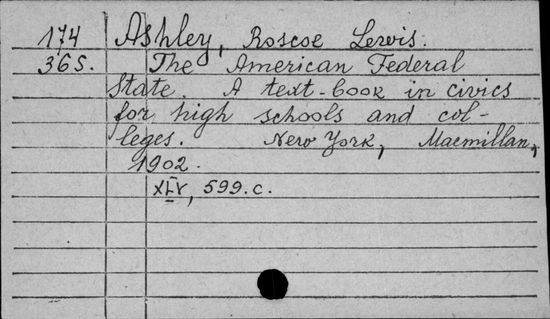 174 Ashley, Roscoe Lewis.
365. The American Federal
State. A text-book in civics
for high schools and col-
leges. New York, Macmillan,
1902.
XLV, 599.c.